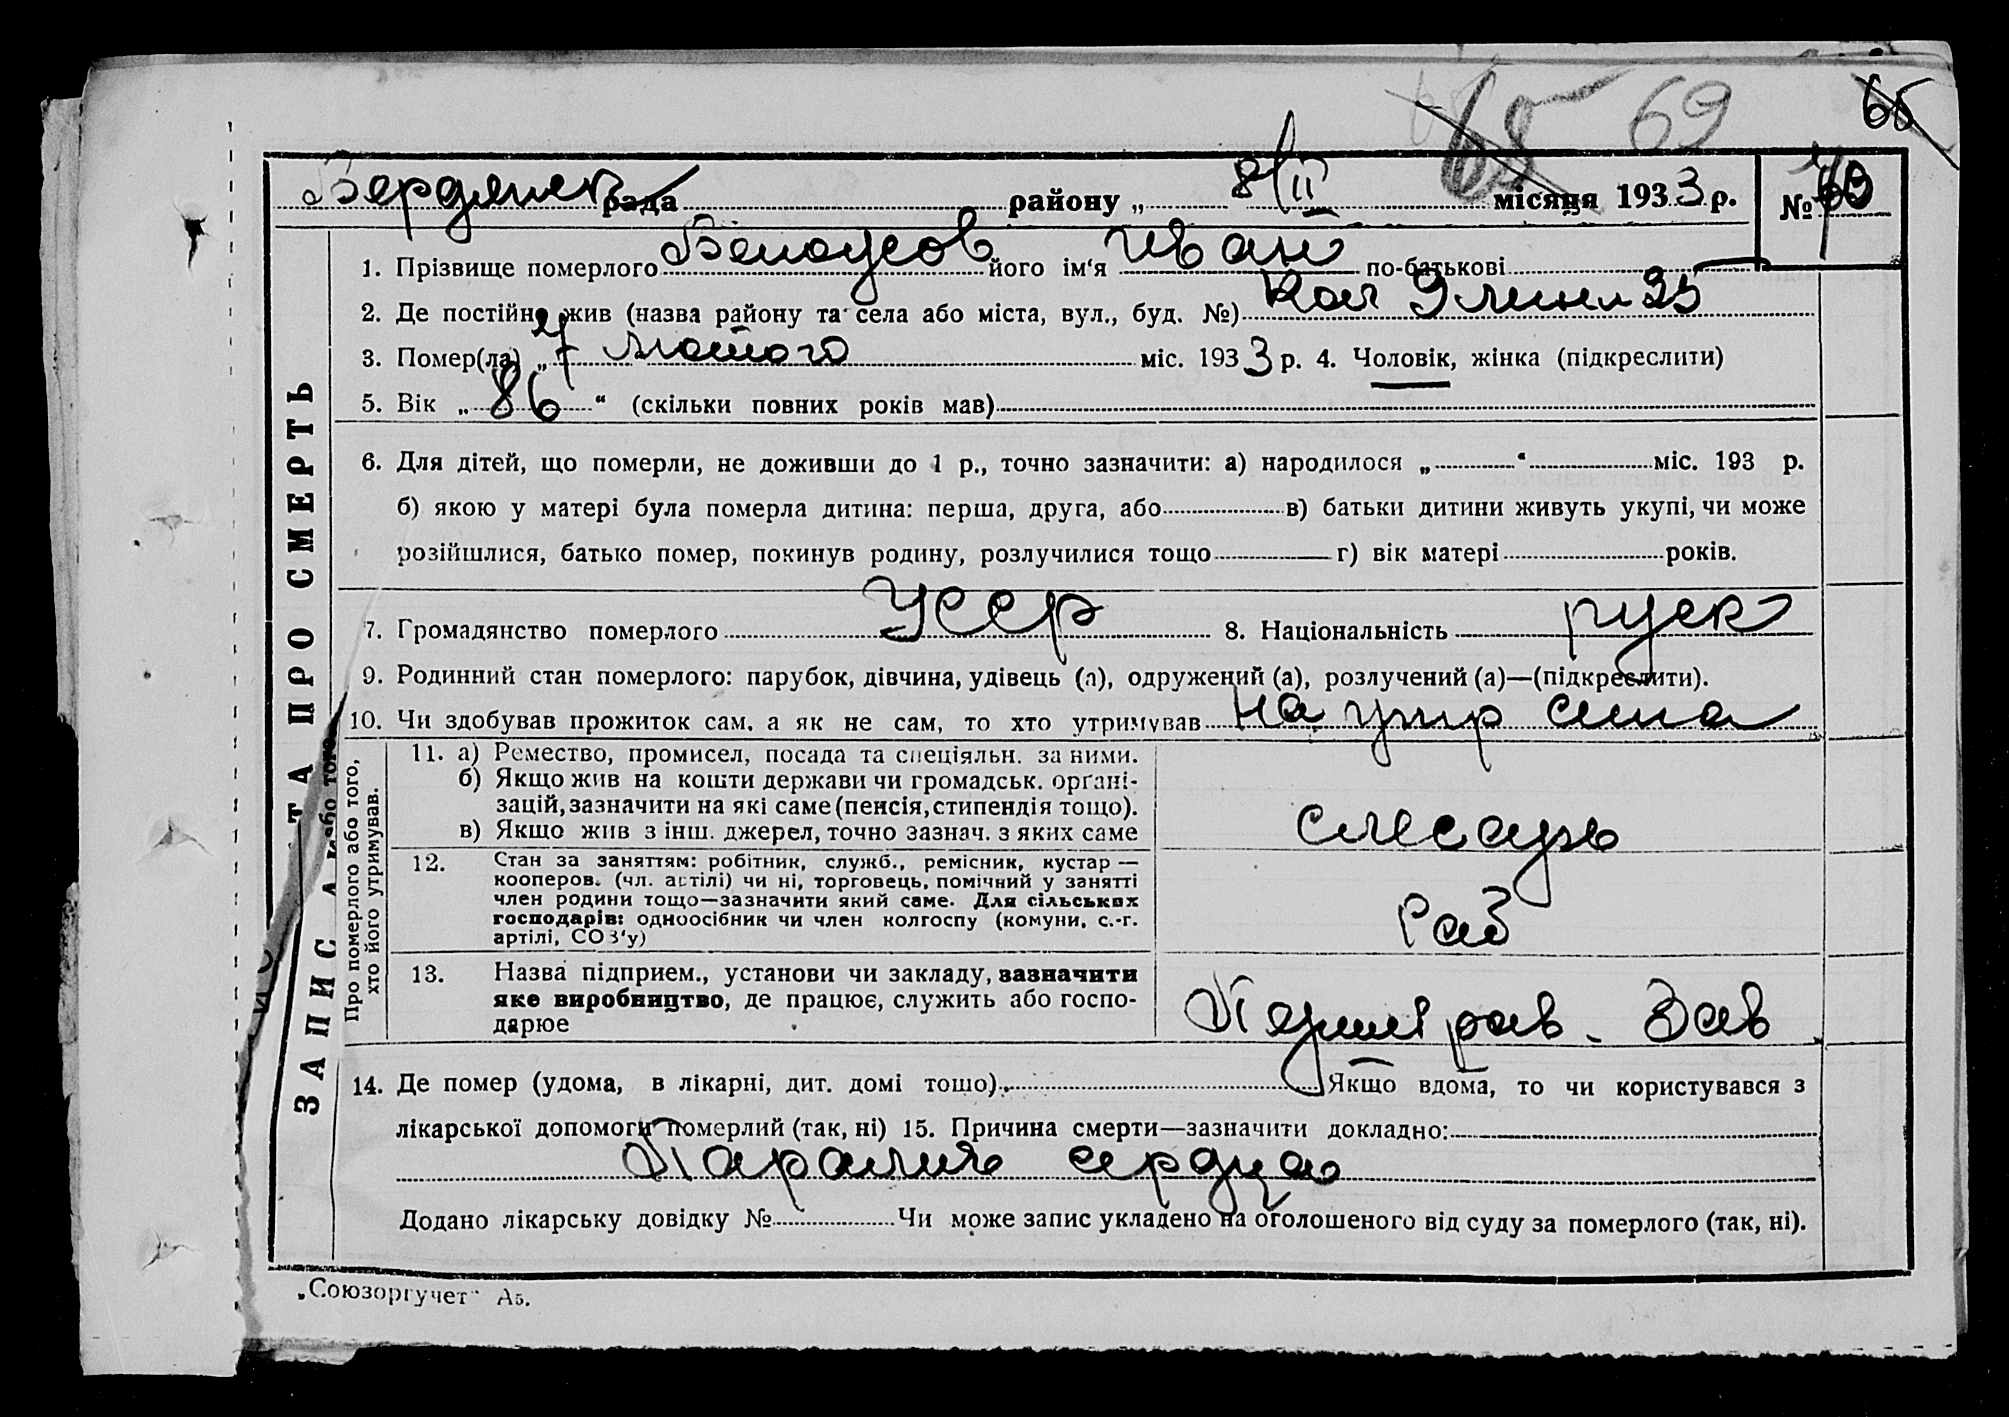 65 69 65
Бердянск рада району „ 8/II місяця 1933 р. №
1. Прізвище померлого Белоусов його ім‘я Иван по-батькові
2. Де постійно жив (назва району та села або міста, вул., буд. №) Кол 9 линия 25
3. Помер(ла) „ 7 лютого міс. 1933 р. 4. Чоловік, жінка (підкреслити)
5. Вік „ 86 “ (скільки повних років мав)
6. Для дітей, що померли, не доживши до 1 р., точно зазначити: а) народилося „ “ міс. 193 р.
б) якою у матері була померла дитина: перша, друга, або в) батьки дитини живуть укупі, чи може
розійшлися, батько помер, покинув родину, розлучилися тощо г) вік матері років.
7. Громадянство померлого Усср 8. Національність руск
9. Родинний стан померлого: парубок, дівчина, удівець (а), одружений (а), розлучений (а)—(підкреслити).
10. Чи здобував прожиток сам, а як не сам, то хто утримував на утр сина
ЗАПИС А ТА ПРО СМЕРТЬ
Про померлого або того,
хто його утримував.
11. а) Ремество, промисел, посада та спеціяльн. за ними.
б) Якщо жив на кошти держави чи громадськ. органі-
зацій, зазначити на які саме (пенсія, стипендія тощо).
в) Якщо жив з інш. джерел, точно зазнач. з яких саме
слесарь
12. Стан за заняттям: робітник, служб., ремісник, кустар —
кооперов. (чл. артілі) чи ні, торговець, помічний у занятті
член родини тощо—зазначити який саме. Для сільських
господарів: одноосібник чи член колгоспу (комуни, с.-г.
артілі, СОЗ‘у)
Раб
13. Назва підприєм., установи чи закладу, зазначити
яке виробництво, де працює, служить або госпо-
дарює
Первомайск Зав
14. Де помер (удома, в лікарні, дит. домі тощо) Якщо вдома, то чи користувався з
лікарської допомоги померлий (так, ні) 15. Причина смерти—зазначити докладно:
Паралич сердца
Додано лікарську довідку № Чи може запис укладено на оголошеного від суду за померлого (так, ні).
„Союзоргучет“ А5.